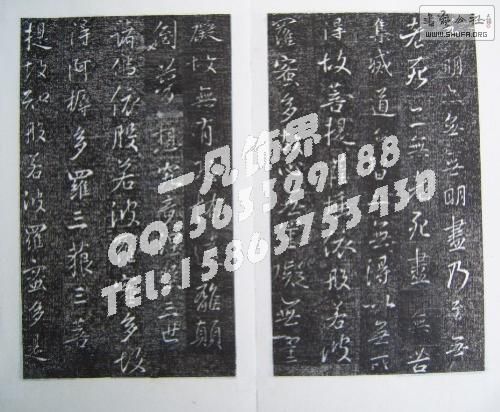 無明亦無無明盡乃至無
老死亦無老死盡無苦
集滅道無智亦無得以無所
得故菩提薩埵依般若波
羅蜜多故心無罣礙無罣
礙故無有恐怖遠離顛
倒夢想究竟涅槃三世
諸佛依般若波羅蜜多故
得阿耨多羅三藐三菩
提故知般若波羅蜜多是
一凡饰界
QQ:563399188
TEL:15863753430
书法公社
WWW.SHUFA.ORG